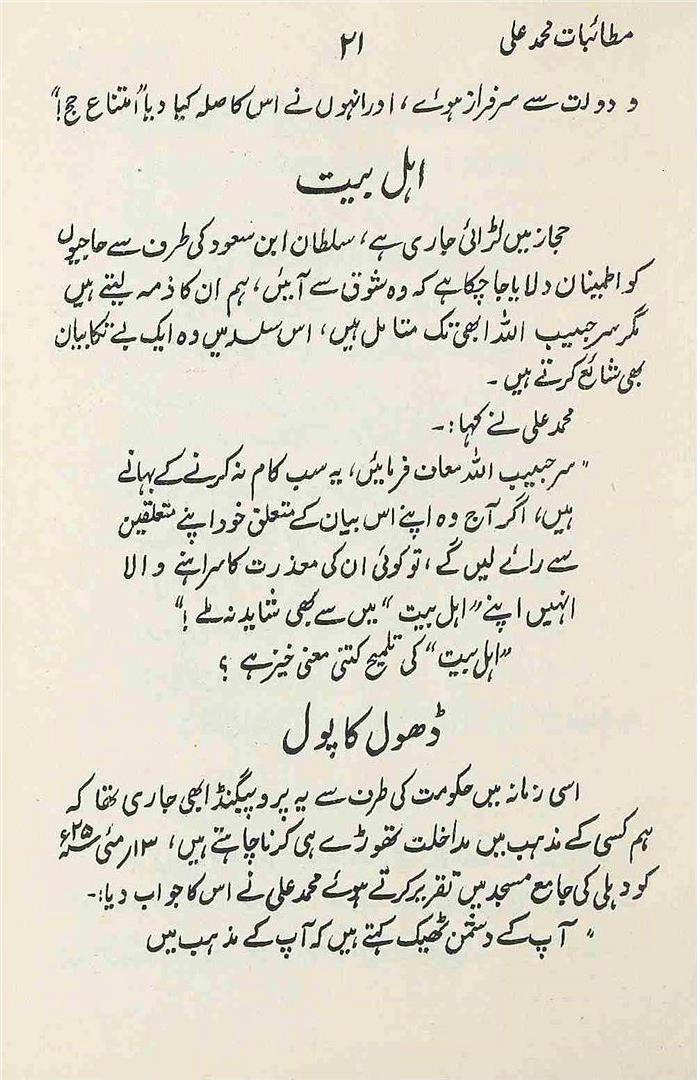 مطائبات محمد علی
۲۱
و دولت سے سرفراز ہوئے، اور انہوں نے اس کا صلہ کیا دیا "امتناع حج!"
اہل بیت
حجاز میں لڑائی جاری ہے، سلطان ابن سعود کی طرف سے حاجیوں
کو اطمینان دلایا جا چکا ہے کہ وہ شوق سے آئیں، ہم ان کا ذمہ لیتے ہیں
مگر سر حبیب اللہ ابھی تک متامل ہیں، اس سلسلہ میں وہ ایک بے تکا بیان
بھی شائع کرتے ہیں۔
محمد علی نے کہا:۔
"سر حبیب اللہ معاف فرمائیں، یہ سب کام نہ کرنے کے بہانے
ہیں، اگر آج وہ اپنے اس بیان کے متعلق خود اپنے متعلقین
سے رائے لیں گے، تو کوئی ان کی معذرت کا سراہنے والا
انہیں اپنے "اہل بیت" میں سے بھی شاید نہ ملے!"
"اہل بیت" کی تلمیح کتنی معنی خیز ہے ؟
ڈھول کا پول
اسی زمانہ میں حکومت کی طرف سے یہ پروپیگنڈا بھی جاری تھا کہ
ہم کسی کے مذہب میں مداخلت تھوڑے ہی کرنا چاہتے ہیں، ۱۳ مئی ۲۵ء
کو دہلی کی جامع مسجد میں تقریر کرتے ہوئے محمد علی نے اس کا جواب دیا:۔
"آپ کے دشمن ٹھیک کہتے ہیں کہ آپ کے مذہب میں